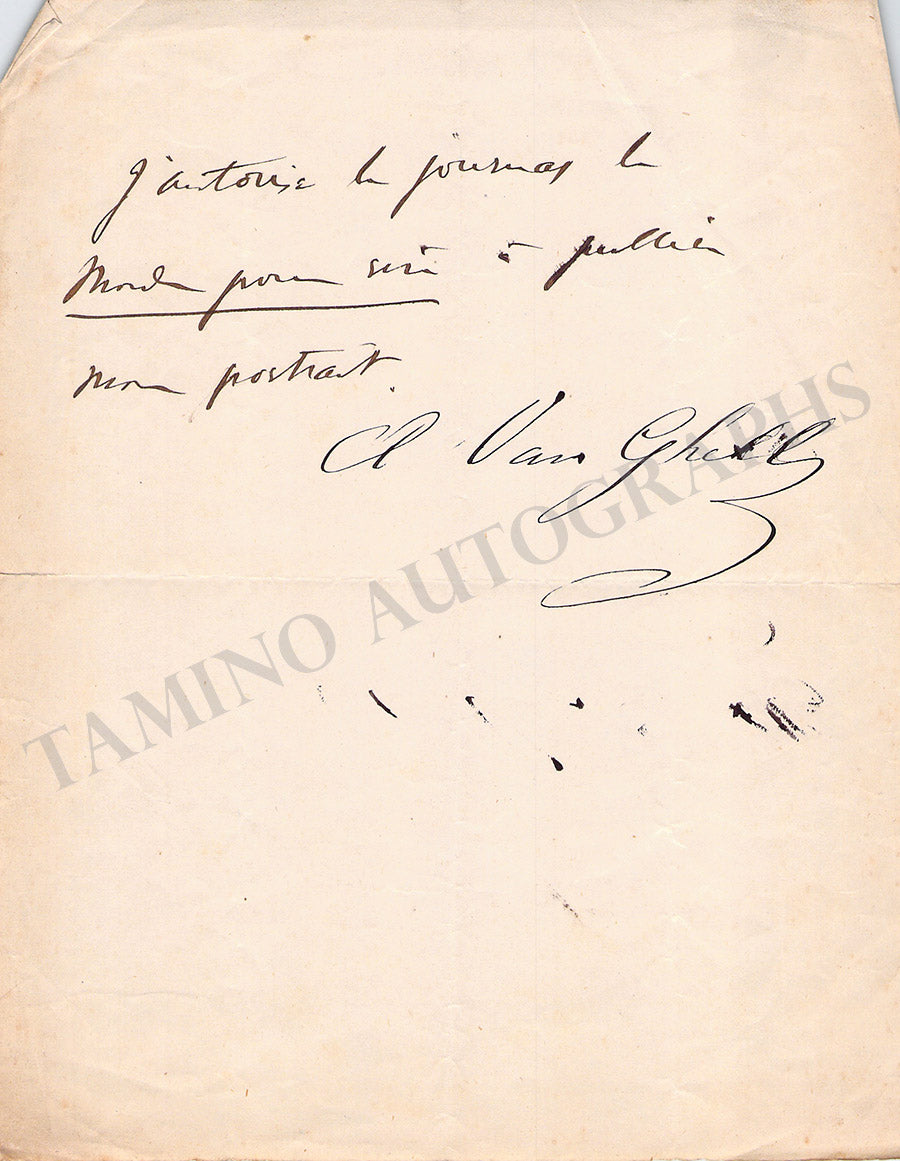 J'autorise le journal le
Monde pour rire à publier
mon portrait.
A Van Ghell
TAMINO AUTOGRAPHS